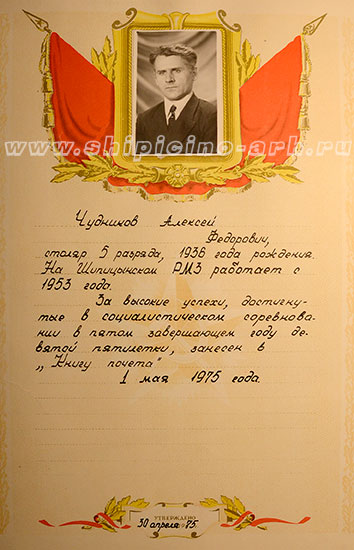 www.shipicino-ark.ru
Чудинов Алексей
Федорович,
столяр 5 разряда, 1936 года рождения.
На Шипицынском РМЗ работает с
1953 года.
За высокие успехи, достигну-
тые в социалистическом соревнова-
нии в пятом завершающем году де-
вятой пятилетки, занесен в
„Книгу почета"
1 мая 1975 года.
УТВЕРЖДЕНО
30 апреля 75.